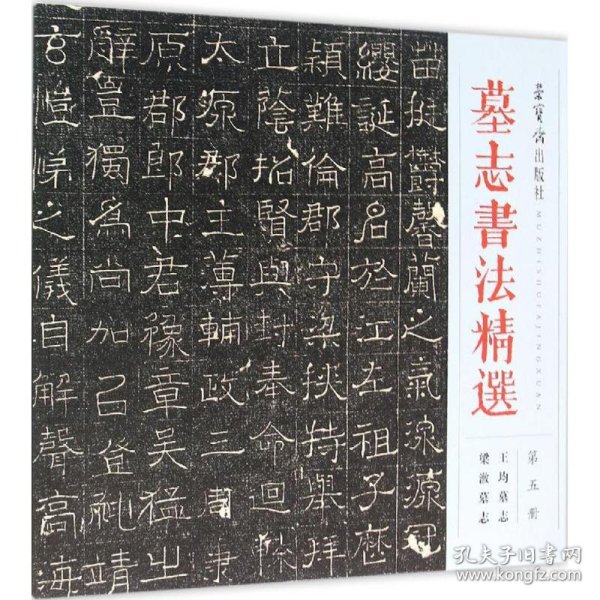 荣寶齋出版社
MUZHISHUFAJINGXUAN
墓志書法精選
第五册
王均墓志
梁墓志
苗挺馨蘭之氣深源冠
纓誕高名於江左祖子
穎難倫郡守梁特舉拜
立蔭招賢與封奉命迴
太源郡主薄輔政三周
原郡郎中君豫章吴猛出
辭豈獨爲尚加召登靖
言愷悌之儀自解聲高海
孔夫子旧书网
www.kongfz.com